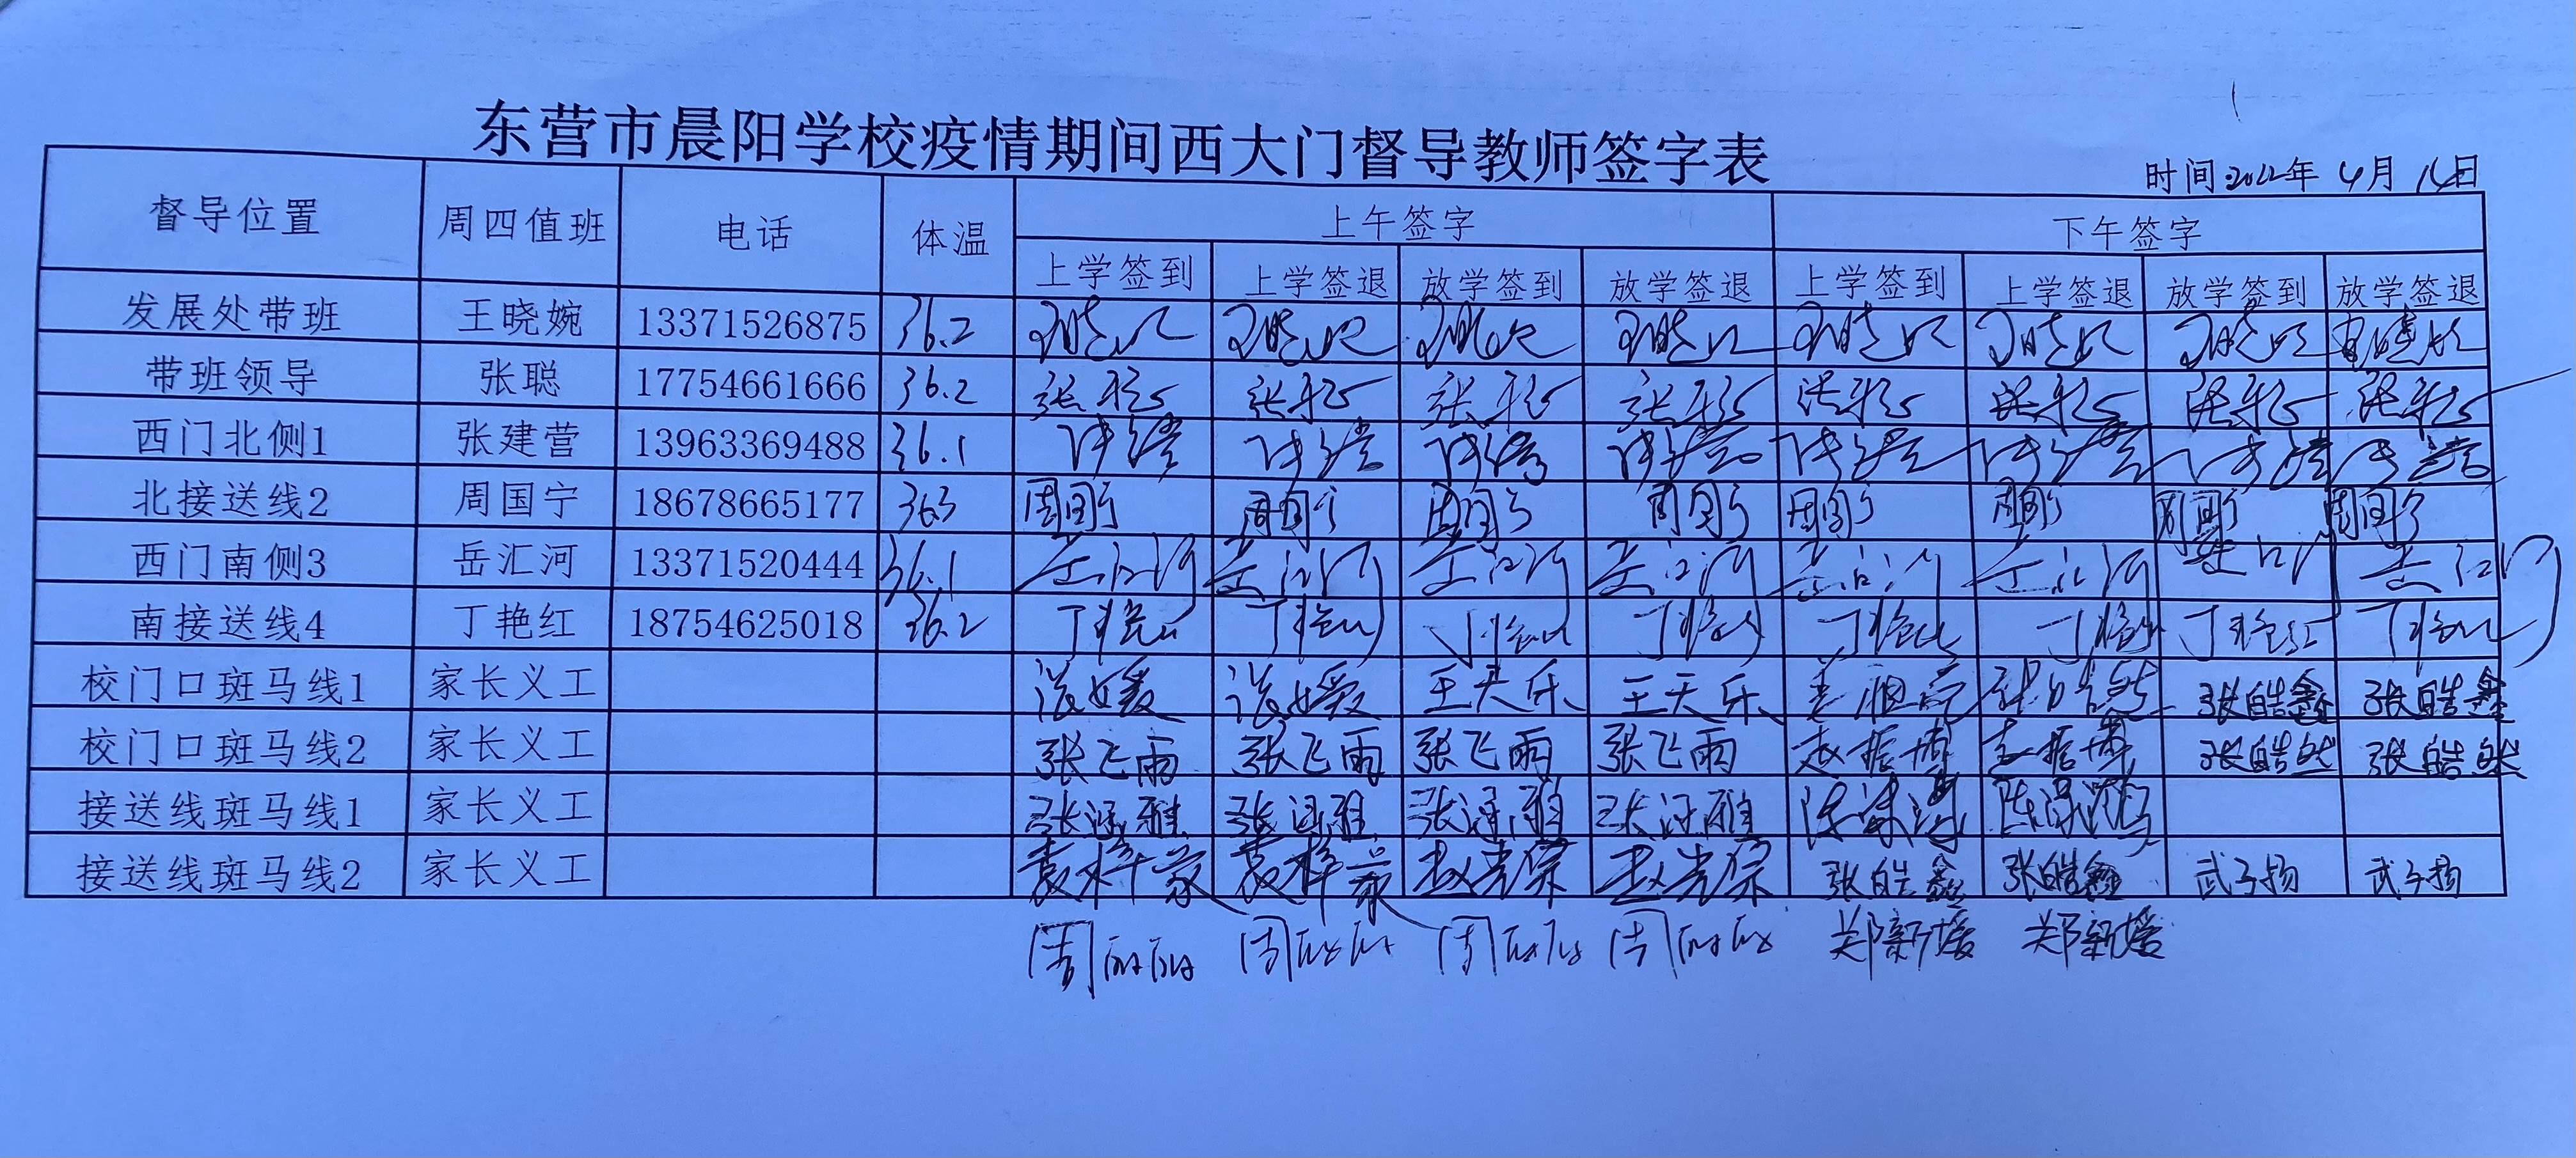 东营市晨阳学校疫情期间西大门督导教师签字表
时间:2022年 4月 14日
督导位置 周四值班 电话 体温 上午签字 下午签字
上学签到 上学签退 放学签到 放学签退 上学签到 上学签退 放学签到 放学签退
发展处带班 王晓婉 13371526875 36.2 王晓婉 王晓婉 王晓婉 王晓婉 王晓婉 王晓婉 王晓婉 王晓婉
带班领导 张聪 17754661666 36.2
西门北侧1 张建营 13963369488 36.1
北接送线2 周国宁 18678665177 36.3 周国宁 周国宁 周国宁 周国宁 周国宁 周国宁 周国宁 周国宁
西门南侧3 岳汇河 13371520444 36.1 岳汇河 岳汇河 岳汇河 岳汇河 岳汇河 岳汇河 岳汇河 岳汇河
南接送线4 丁艳红 18754625018 36.2 丁艳红 丁艳红 丁艳红 丁艳红 丁艳红 丁艳红 丁艳红 丁艳红
校门口斑马线1 家长义工 王天乐 王天乐 张皓鑫 张皓鑫
校门口斑马线2 家长义工 张飞雨 张飞雨 张飞雨 张飞雨 赵振博 赵振博 张皓然 张皓然
接送线斑马线1 家长义工 张涵雅 张涵雅 张涵雅 张涵雅
接送线斑马线2 家长义工 袁梓蒙 袁梓蒙 张皓鑫 张皓鑫 武子扬 武子扬
周丽丽 周丽丽 周丽丽 周丽丽 郑新媛 郑新媛